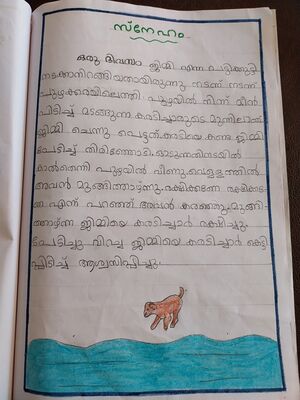 സ്നേഹം
ഒരു ദിവസം ജിമ്മി എന്ന പട്ടിക്കുട്ടി
നടക്കാനിറങ്ങിയതായിരുന്നു നടന്ന് നടന്ന്
പുഴക്കരയിലെത്തി പുഴയിൽ നിന്ന് മീൻ
പിടിച്ച് മടങ്ങുന്ന കരടിച്ചാരുടെ മുന്നിലാണ്
ജിമ്മി ചെന്നു പെട്ടത്. കരടിയെ കണ്ട ജിമ്മി
പേടിച്ച് തിരിഞ്ഞോടി. ഓടുന്നതിനിടയിൽ
കാൽതെന്നി പുഴയിൽ വീണു. വെള്ളത്തിൽ
അവൻ മുങ്ങിത്താഴ്ന്നു. രക്ഷിക്കണേ രക്ഷിക്ക
ണേ എന്ന് പറഞ്ഞ് അവൻ കരഞ്ഞു. മുങ്ങി
ത്താഴ്ന്ന ജിമ്മിയെ കരടിച്ചാർ രക്ഷിച്ചു.
പേടിച്ചു വിറച്ച ജിമ്മിയെ കരടിച്ചാർ കെട്ടി
പ്പിടിച്ച് ആശ്വസിപ്പിച്ചു.